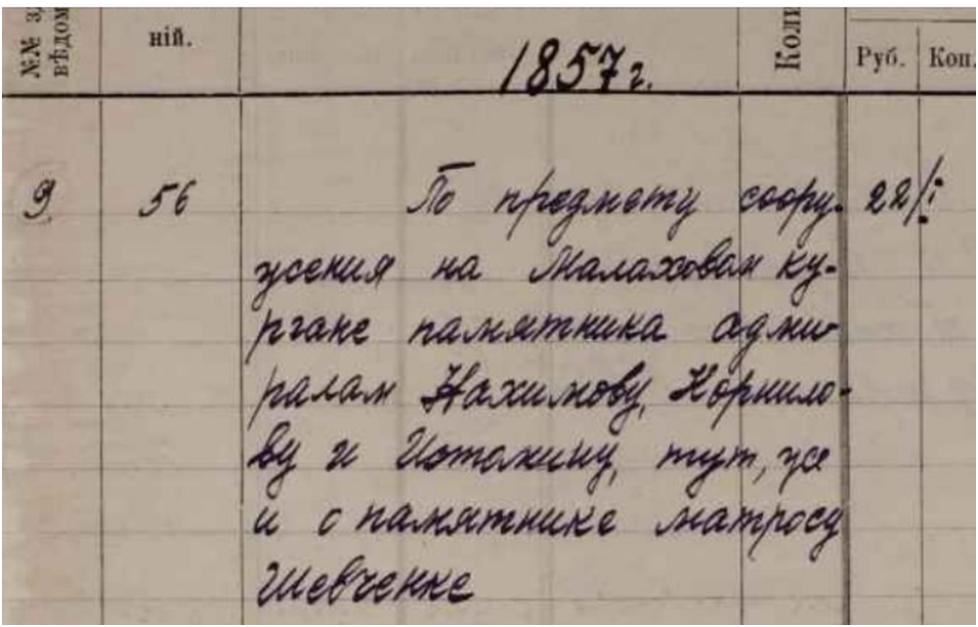 №№ з
вѣдом
ній.
1857 г.
Коли
Руб.
Коп.
9
56
По предмету соору-
22/I
жения на Малаховам ку-
ргане памятника адми-
ралам Нахимову, Корнило-
ву и Истомину, тут, же
и о памятнике матросу
Шевченке